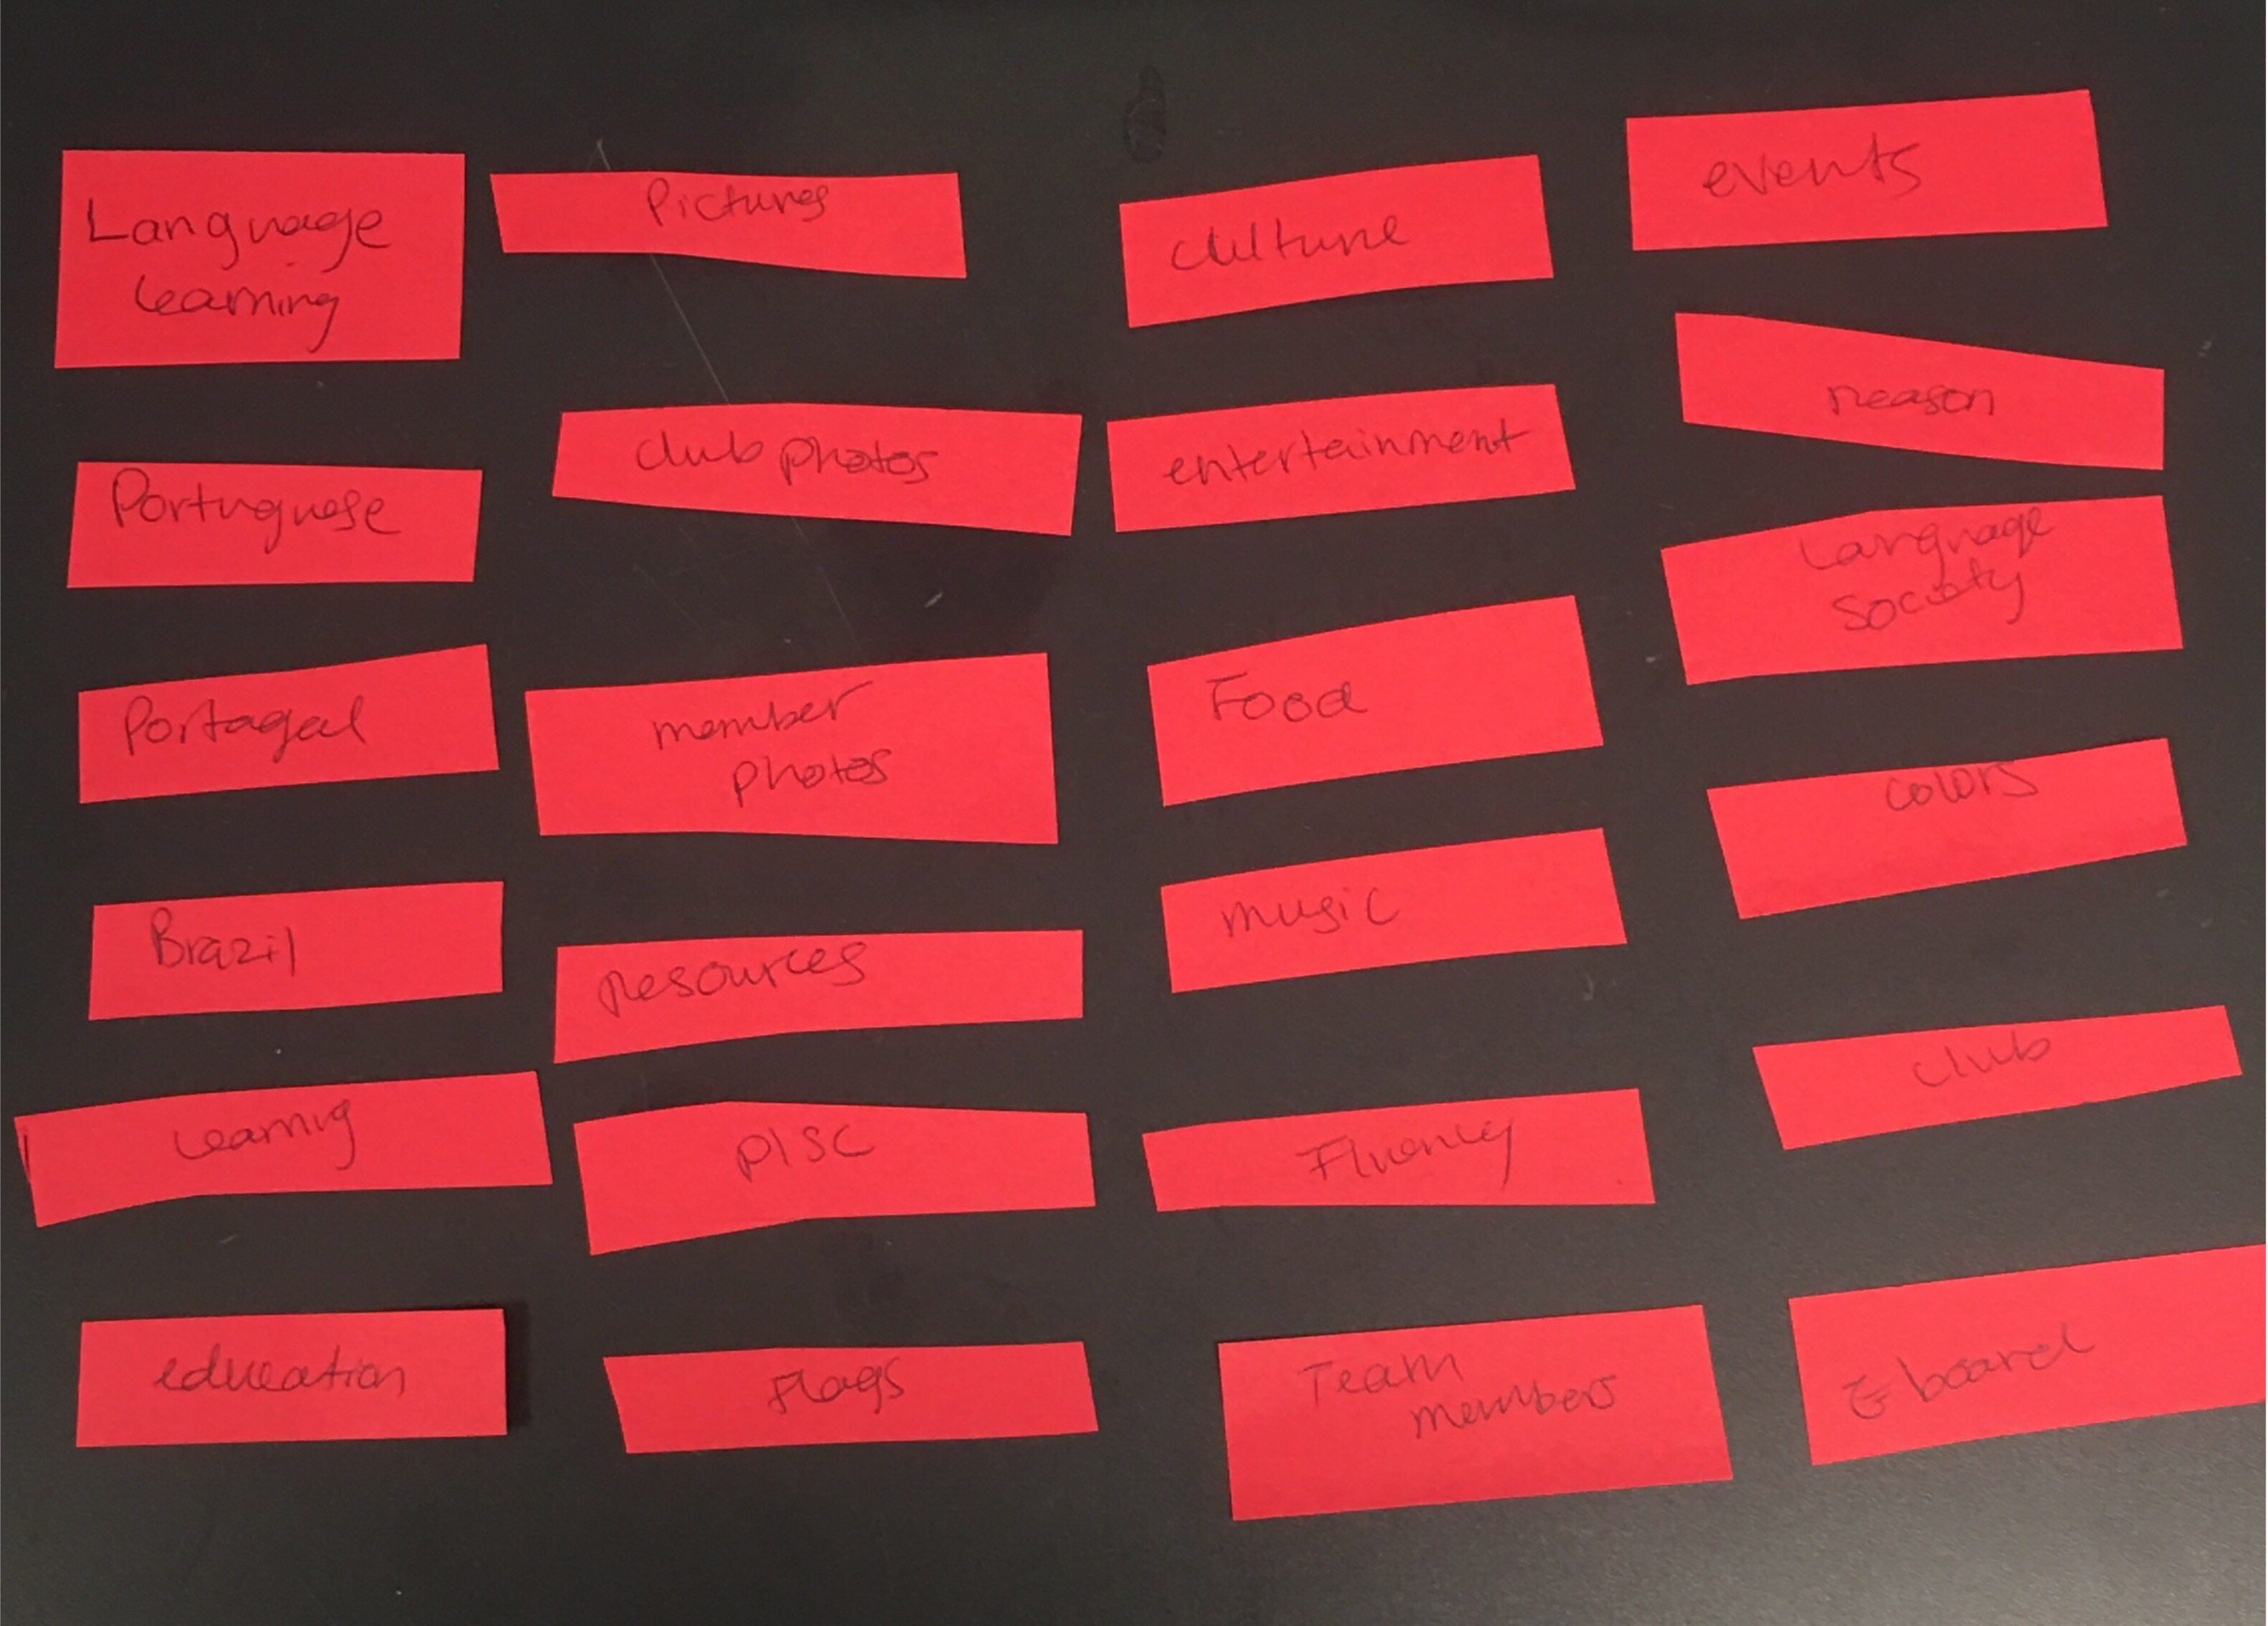 Language
learning
Portuguese
Portagal
Brazil
Learnig
education
Pictures
club photos
member
photos
resources
PLSC
Flags
culture
entertainment
Food
music
Fluency
Team
members
events
reason
Language
Society
colors
club
E board